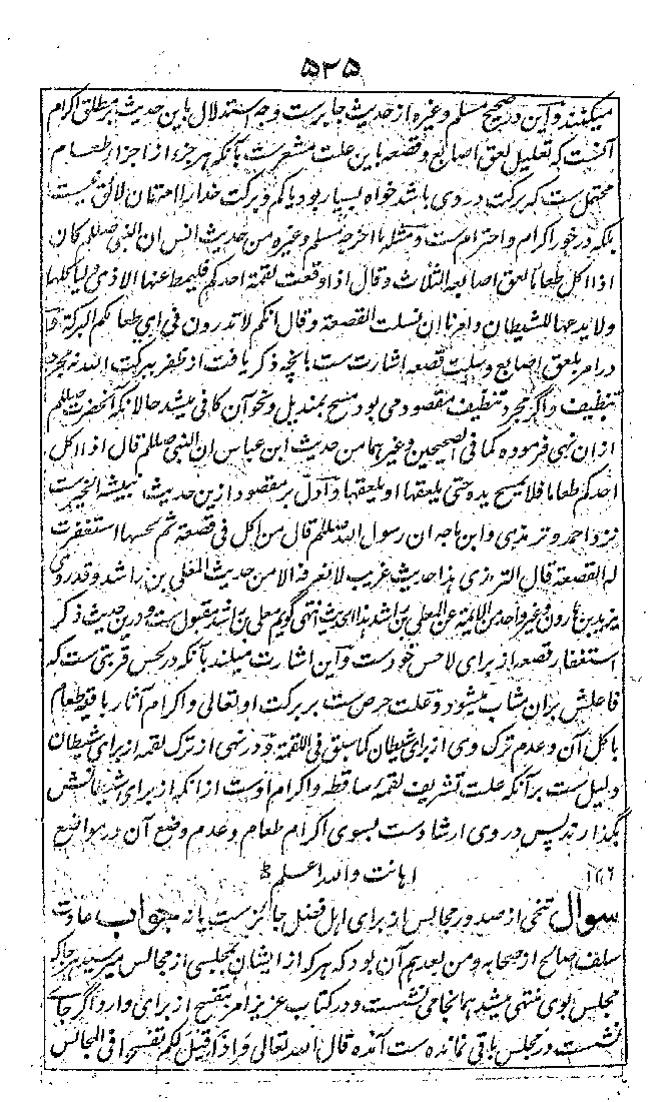 ۵۲۵
میکنند و این در صحیح مسلم وغیره از حدیث جابرست وجه استدلال باین حدیث بر مطلق اکرام
آنست که تعلیل لعق اصابع و قصعه باین علت مشعرست بآنکه هر جزء از اجزاء طعام
محتمل ست که برکت در وی باشد خواه بسیار بود یا کم و برکت خدا را امتهان لائق نیست
بلکه در خور اکرام و احترام ست و مثله ما اخرجه مسلم وغیره من حدیث انس ان النبی صلّلم کان
اذا اکل طعاما لعق اصابعه الثلاث و قال اذا وقعت لقمة احدکم فلیمط عنها الاذی ولیاکلها
ولا یدعها للشیطان وامرنا ان نسلت القصعة وقال انکم لا تدرون فی ای طعامکم البرکة
در امر بلعق اصابع و سلت قصعه اشارت ست بانچه ذکر یافت از ظفر ببرکت الله نه مجرد
تنظیف و اگر مجرد تنظیف مقصود می بود مسح بمندیل و نحو آن کافی میشد حالانکه آنحضرت صلّلم
ازان نهی فرموده کما فی الصحیحین وغیرهما من حدیث ابن عباس ان النبی صلّلم قال اذا اکل
احدکم طعاما فلا یمسح یده حتی یلعقها او یلعقها و ادل بر مقصود ازین حدیث نبیشة الخیرست
نزد احمد و ترمذی و ابن ماجه ان رسول الله صلّلم قال من اکل فی قصعة ثم لحسها استغفرت
له القصعة قال الترمذی هذا حدیث غریب لا نعرفه الا من حدیث المعلی بن راشد وقد روی
یزید بن هارون وغیر واحد من الائمة عن المعلی بن راشد هذا الحدیث انتهی گویم معلی بن راشد مقبول ست و درین حدیث ذکر
استغفار قصعه از برای لاحس خودست و این اشارت میکند بآنکه در لحس قربتی ست که
فاعلش بران مثاب میشود و علت حرص ست بر برکت او تعالی و اکرام آثار باقیه طعام
باکل آن و عدم ترک وی از برای شیطان کما سبق فی اللقمة و در نهی از ترک لقمه از برای شیطان
دلیل ست بر آنکه علت تشریف لقمه ساقطه و اکرام اوست از انکه از برای شیطانش
بگذارند پس در وی ارشادست بسوی اکرام طعام و عدم وضع آن در مواضع
اهانت والله اعلم
سوال تنحی از صدور مجالس از برای اهل فضل جائزست یا نه جواب عادت
سلف صالح از صحابه ومن بعدهم آن بود که هر که از ایشان بمجلسی از مجالس میرسید هر جا که
مجلس بوی منتهی میشد همانجا می نشست و در کتاب عزیز امر بتفسح از برای وارد اگر جای
نشست در مجلس باقی نمانده ست آمده قال الله تعالی واذا قیل لکم تفسحوا فی المجالس